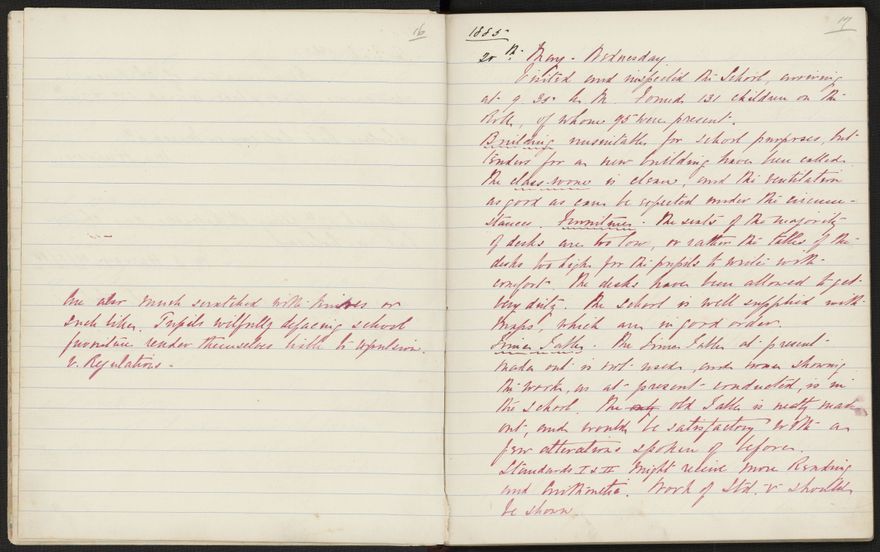 16
are also much scratched with knives or
such like. Pupils wilfully defacing school
furniture render themselves liable to expulsion.
v. Regulations -
17
1885
20th. May - Wednesday
Visited and inspected the School, arriving
at 9.30 A.M. Found 131 children on the
Roll, of whom 95 were present.
Building unsuitable for school purposes, but
tenders for a new building have been called.
The class-rooms is clean, and the ventilation
as good as can be expected under the circum-
stances. Furniture. The seats of the majority
of desks are too low, or rather the tables of the
desks too high for the pupils to write with
comfort. The desks have been allowed to get
very dirty. The school is well supplied with
Maps, which are in good order.
Time Table. The Time Table at present
made out is not used, and none showing
the work, as at present conducted, is in
the school. The only old Table is neatly made
out, and would be satisfactory with a
few alterations spoken of before.
Standards I & II might receive more Reading
and Arithmetic. Work of Std. V should
be shown.